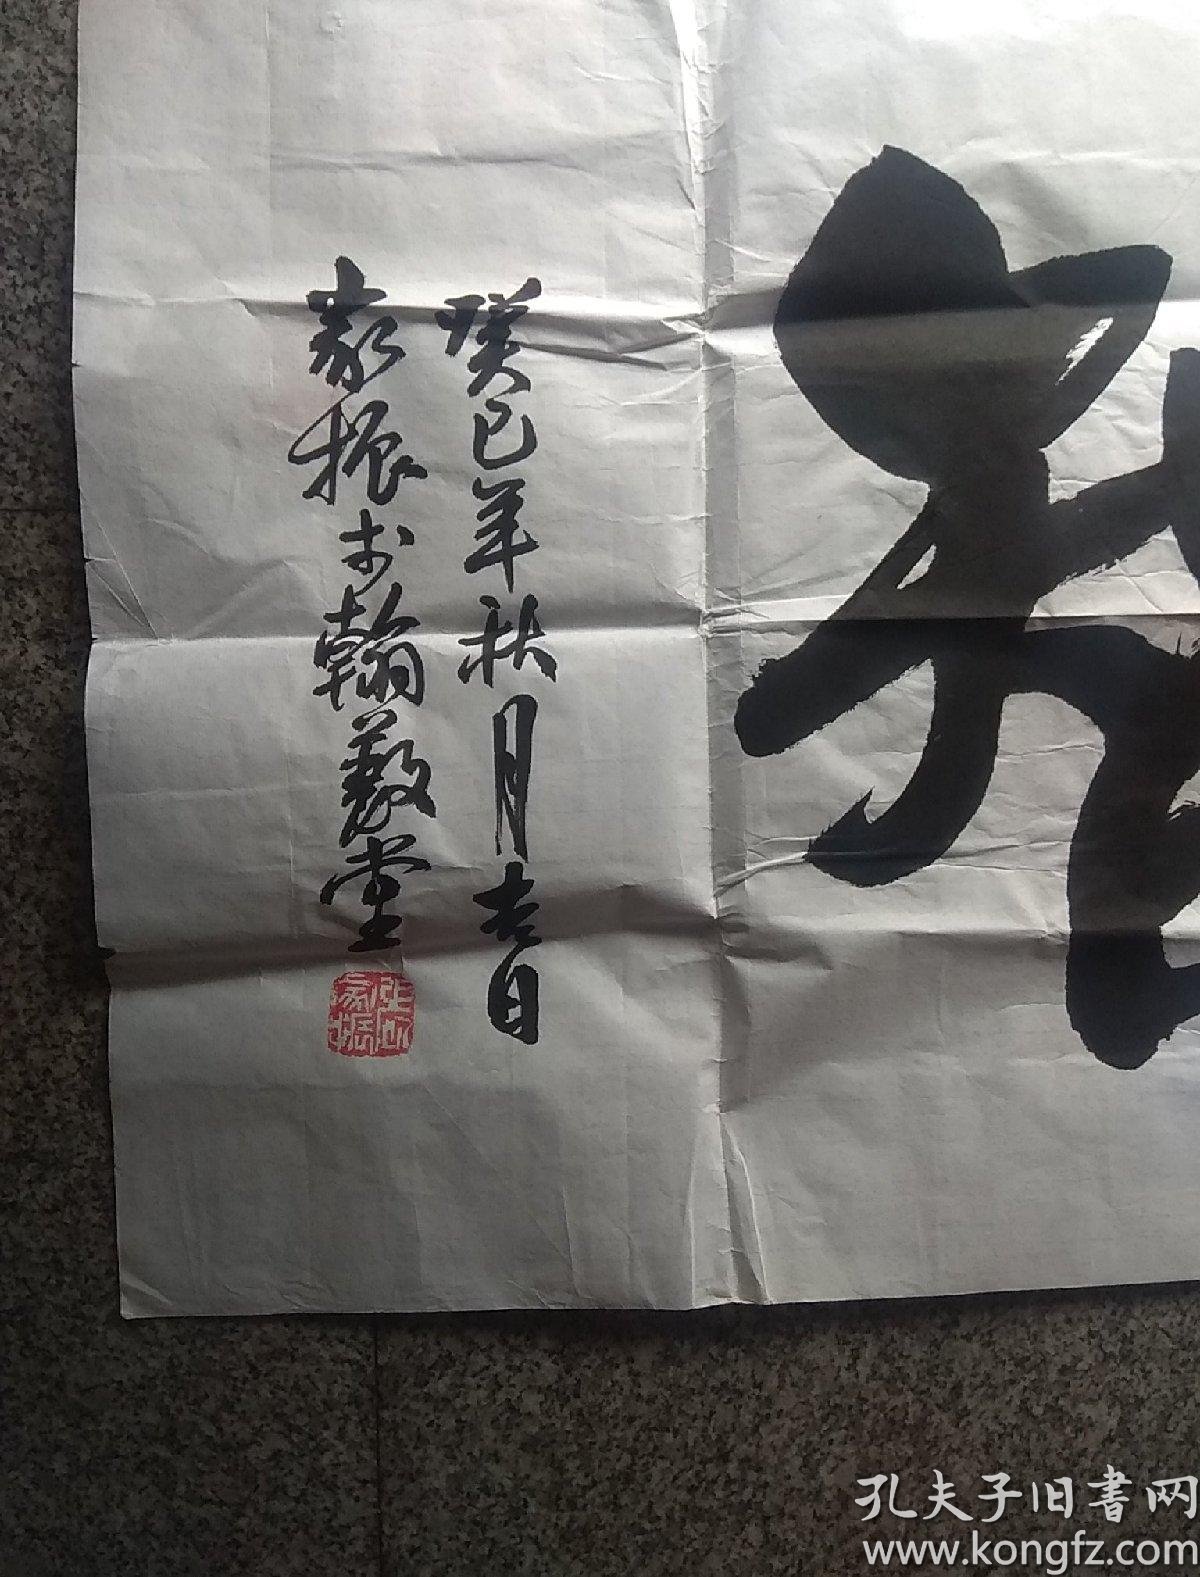 癸巳年秋月吉日
家振书翰藝堂
孔夫子旧书网
www.kongfz.com